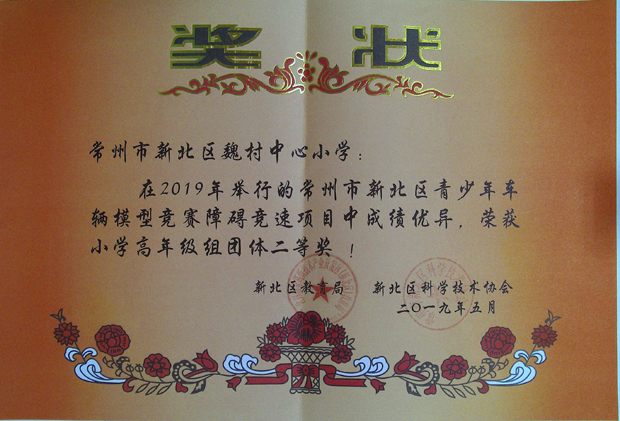 奖状
常州市新北区魏村中心小学：
在2019年举行的常州市新北区青少年车
辆模型竞赛障碍竞速项目中成绩优异，荣获
小学高年级组团体二等奖！
新北区教育局 新北区科学技术协会
二〇一九年五月